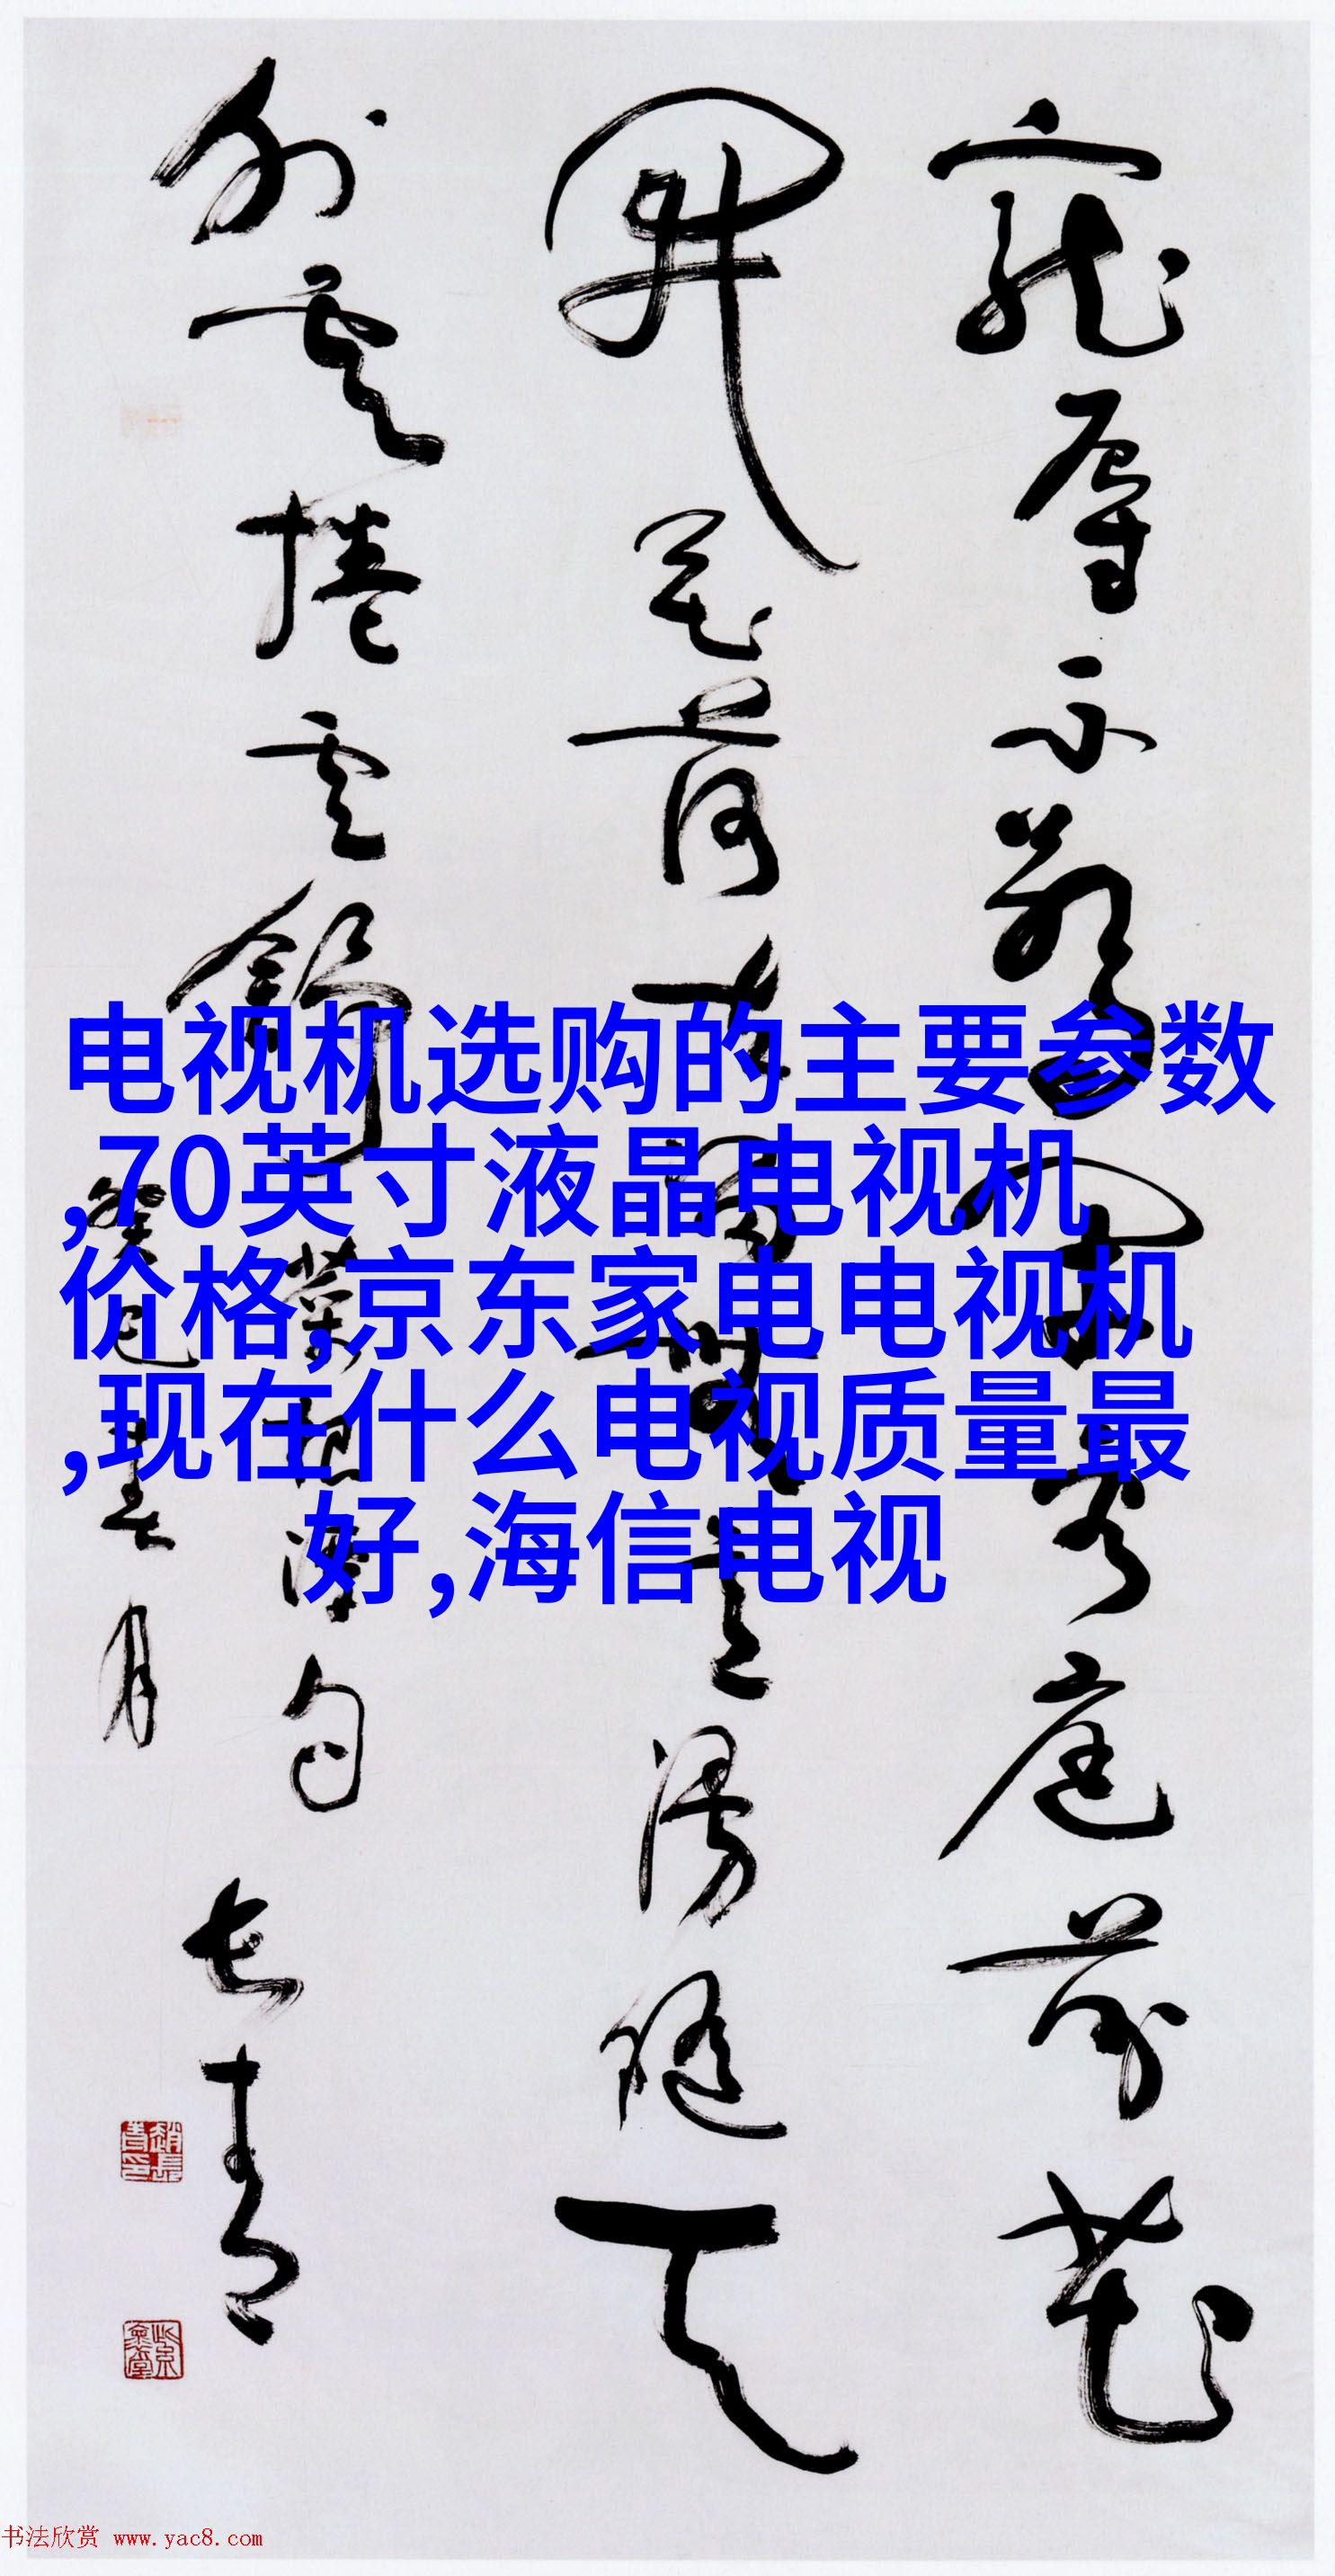 宠辱不惊闲看庭前花
开花落去留无意漫随天
外云卷云舒
菜根谭句
癸巳春月
长青
电视机选购的主要参数
,70英寸液晶电视机
价格,京东家电电视机
,现在什么电视质量最
好,海信电视
书法欣赏 www.yac8.com